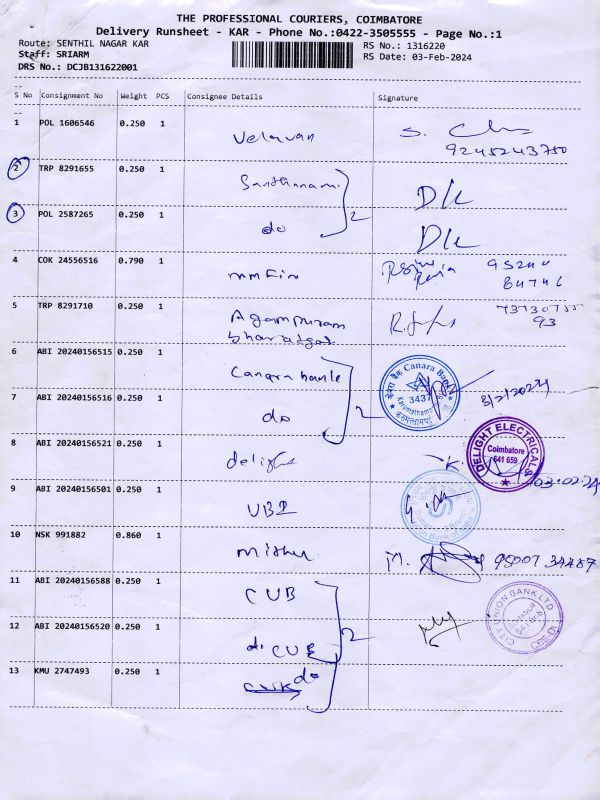 THE PROFESSIONAL COURIERS, COIMBATORE
Delivery Runsheet - KAR - Phone No.:0422-3505555 - Page No.:1
Route: SENTHIL NAGAR KAR
RS No.: 1316220
Staff: SRIARM
RS Date: 03-Feb-2024
DRS No.: DCJB131622001
S No Consignment No Weight PCS Consignee Details Signature
1 POL 1606546 0.250 1 Velavan
9245243750
2 TRP 8291655 0.250 1
3 POL 2587265 0.250 1 do
4 COK 24556516 0.790 1 mmFin
5 TRP 8291710 0.250 1 Agampuram
6 ABI 20240156515 0.250 1 Canara bank 2
केनरा बैंक Canara Bank
3437
7 ABI 20240156516 0.250 1 do
3/2/2024
8 ABI 20240156521 0.250 1 delight
DELIGHT ELECTRICALS
Coimbatore
641 659
9 ABI 20240156501 0.250 1 UBI
03.02.24
Union Bank of India
10 NSK 991882 0.860 1
11 ABI 20240156588 0.250 1 CUB
CITY UNION BANK LTD
12 ABI 20240156520 0.250 1 CUB 2
13 KMU 2747493 0.250 1 do